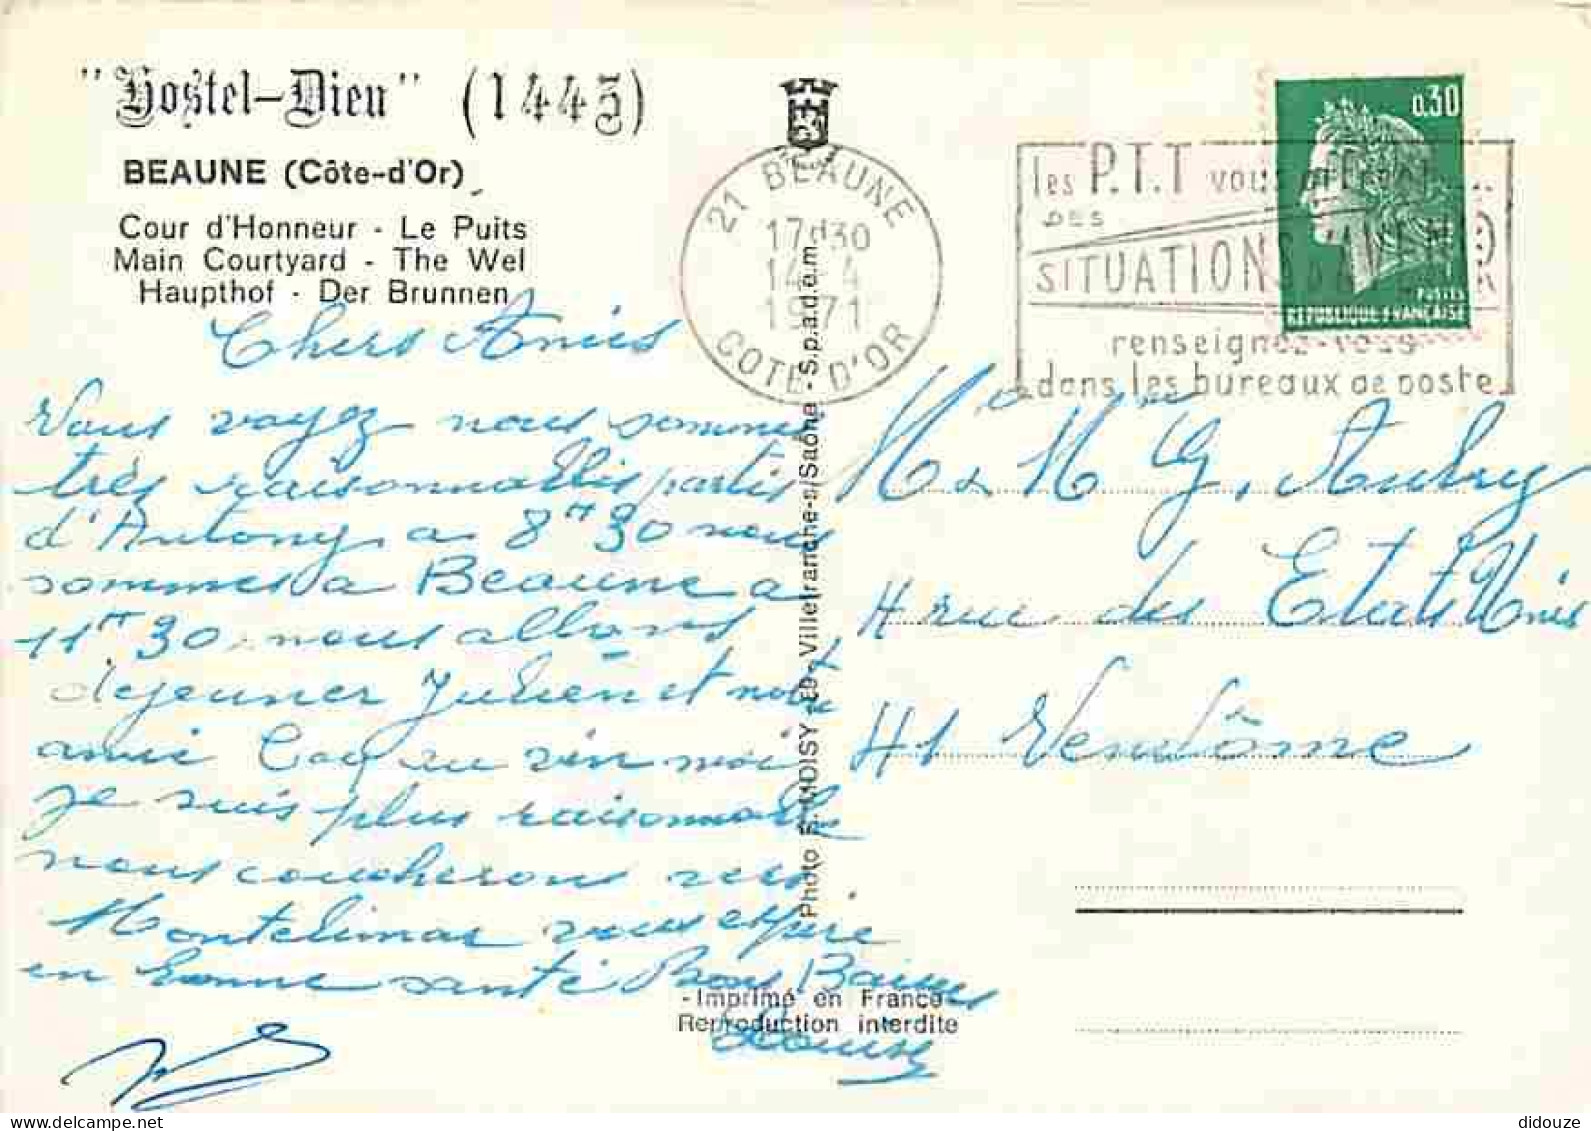 "Hostel-Dieu" (1443)
BEAUNE (Côte-d'Or)
Cour d'Honneur - Le Puits
Main Courtyard - The Wel
Haupthof - Der Brunnen
21 BEAUNE
17H30
14-4
1971
COTE D'OR
les P.T.T vous
DES
SITUATIONS D'AVENIR
renseignez-vous
dans les bureaux de poste
0,30
POSTES
REPUBLIQUE FRANÇAISE
Chers Amis
Vous voyez nous sommes
très raisonnables partis
d'Antony a 8H30 nous
sommes a Beaune a
11H30, nous allons
dejeuner Julien et notre
amie vin moi
je suis plus raisonnable
nous coucherons vers
Montelimar vous espère
en bonne santé Bons Baisers
Louise
Mr & Mme G. Aubry
4 rue des Etats Unis
41 Vendôme
Photo E. MOISY - ED. Villefranche-s/Saône - S.p.a.d.e.m.
- Imprimé en France -
Reproduction interdite
didouze
delcampe.net